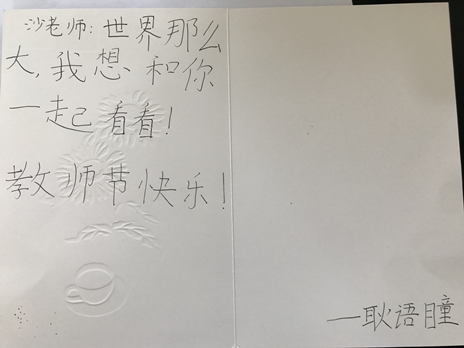 沙老师:世界那么
大,我想和你
一起看看!
教师节快乐!
—耿语瞳